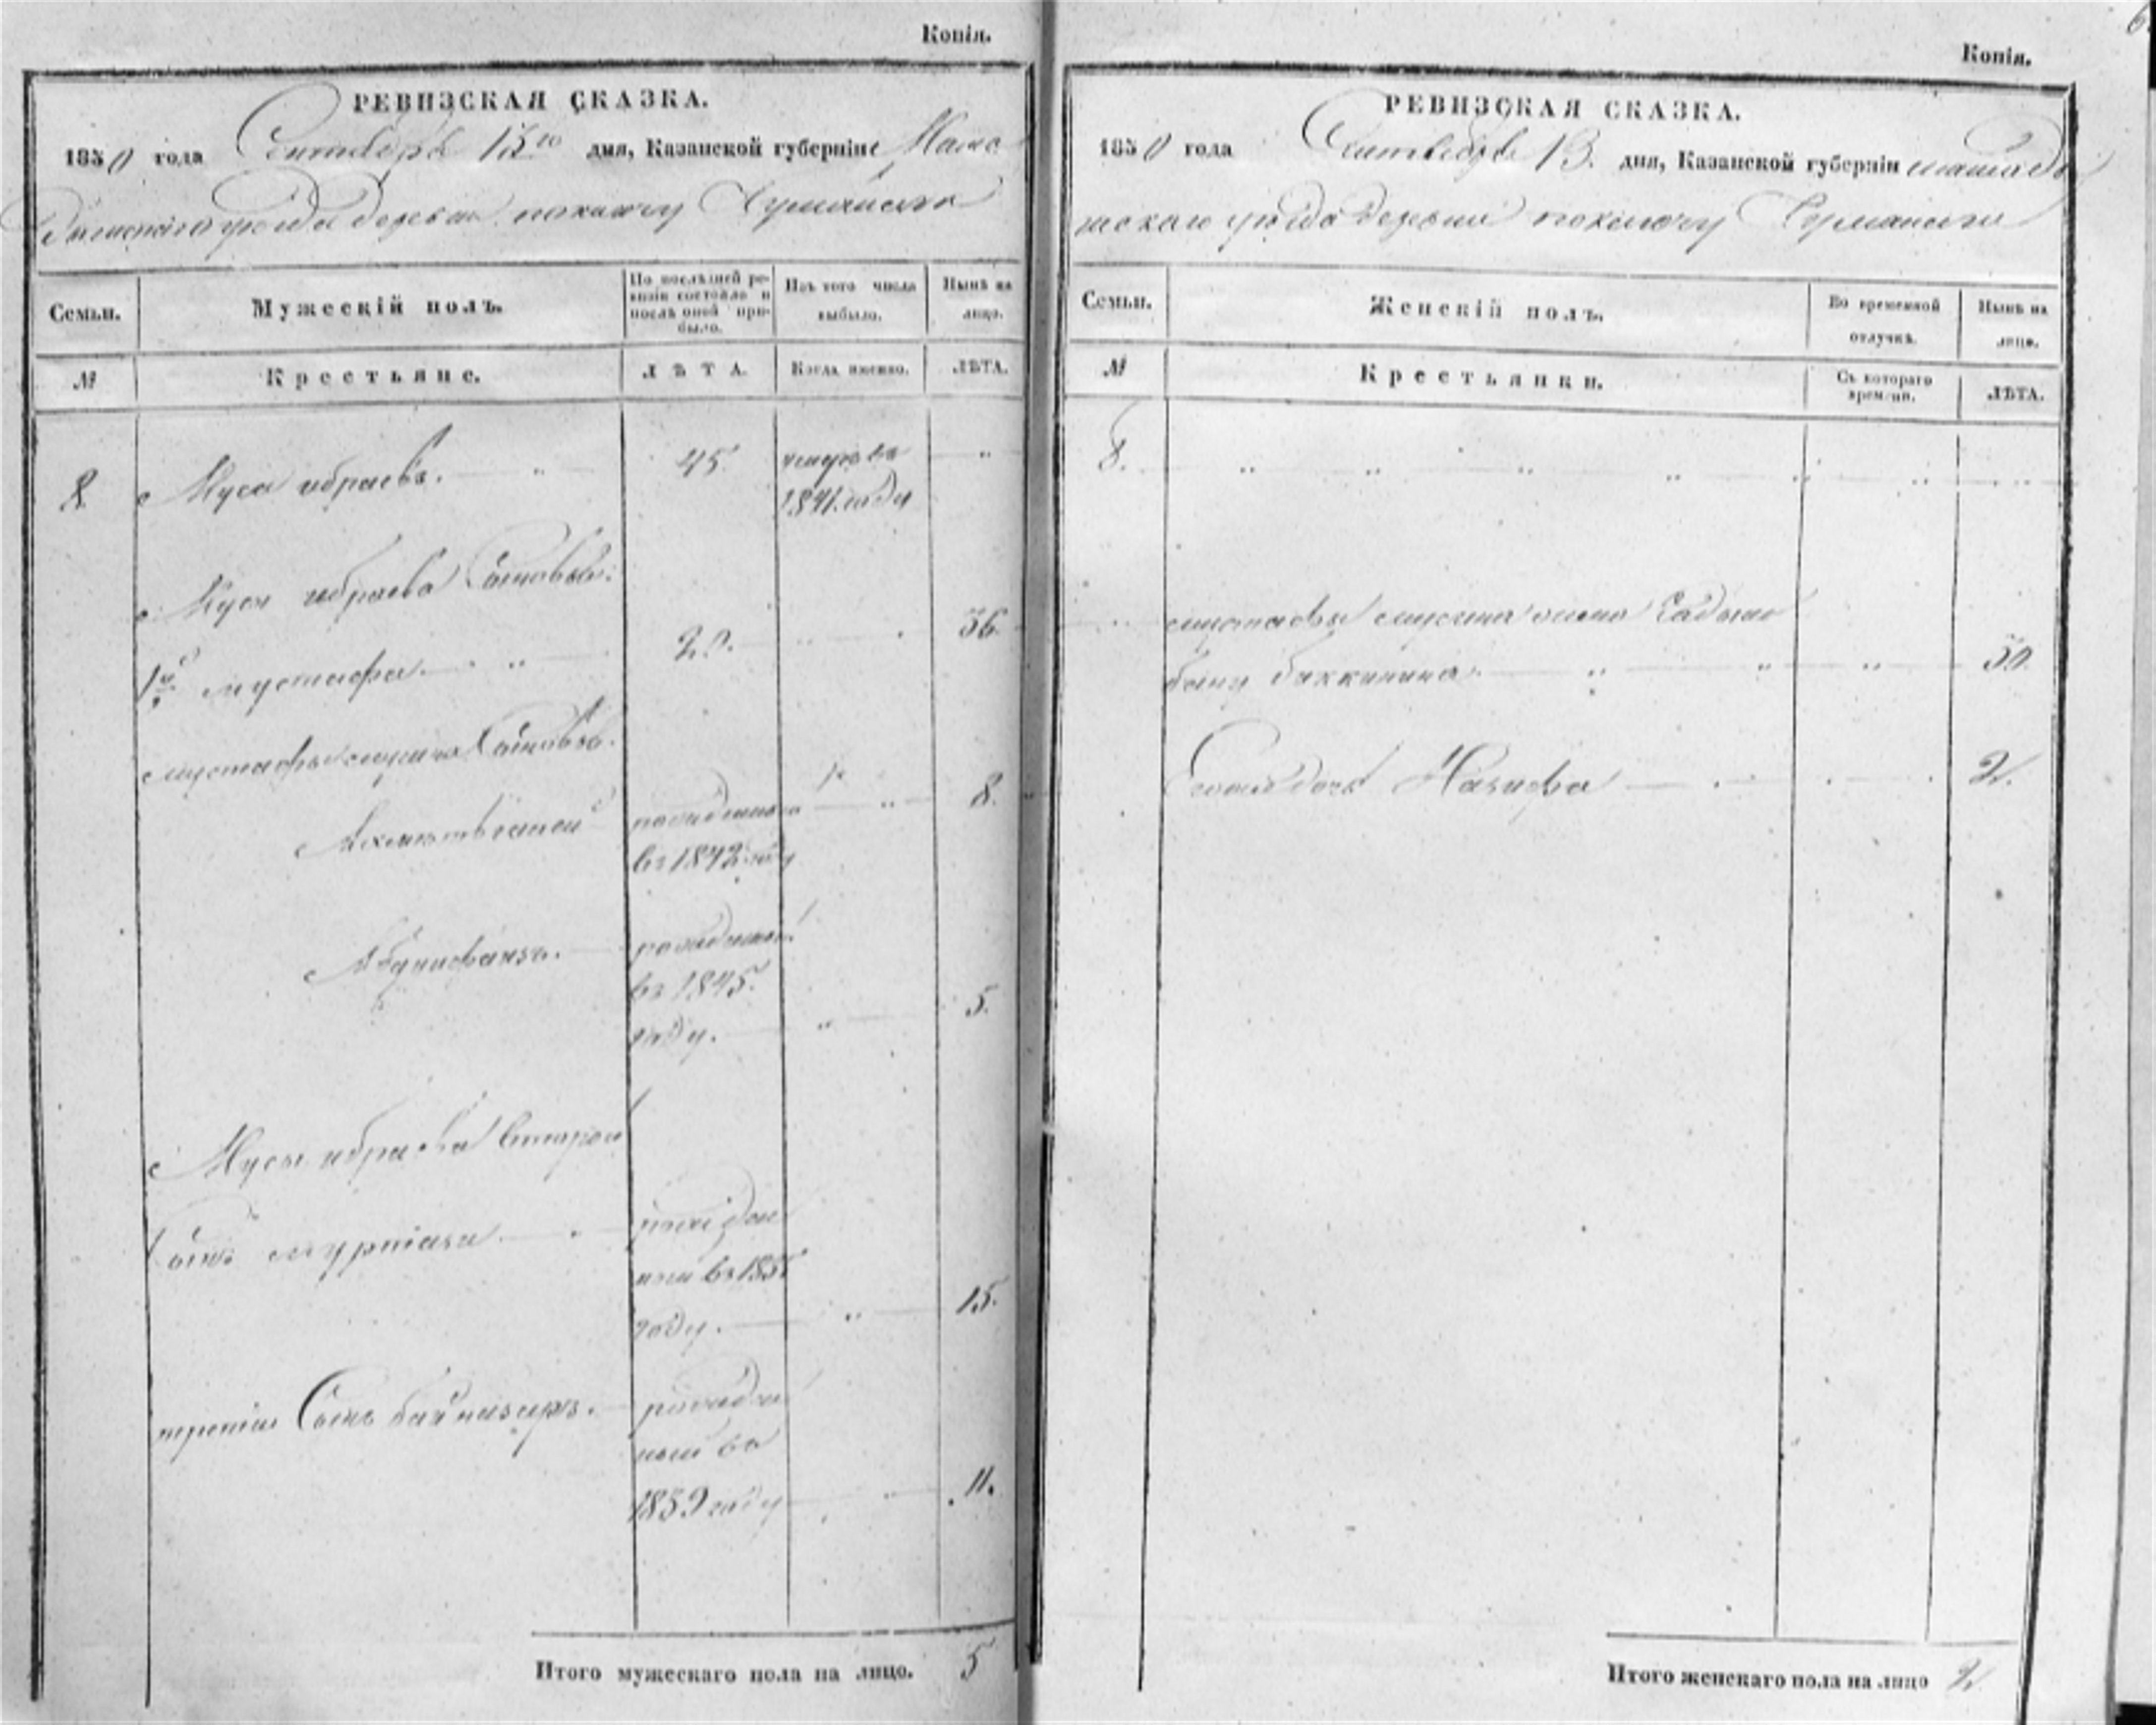 Копія.
РЕВИЗСКАЯ СКАЗКА.
1850 года Сентября 13го дня, Казанской губерніи Мама
дышскаго уѣзда деревни починку
Семьи.
Мужескій полъ.
По послѣдней ре-
визіи состояло и
послѣ оной при-
было.
Изъ того числа
выбыло.
Нынѣ на
лицо.
№
Крестьяне.
ЛѢТА.
Когда именно.
ЛѢТА.
8
Муса ибраевъ.
45
умеръ въ
1841 году
"
Мусы ибраева Сыновья:
1й мустафа.
20.
36
мустафы мусина Сыновья.
Ахметвалей
рожденный
въ 1842 году
"
8.
рожденный
въ 1845.
году.
"
5.
Мусы ибраева второй
Сынъ муртаза
рожден
ный въ 1835
году.
"
15.
третій Сынъ байназаръ.
рожден
ный въ
1839 году
11.
Итого мужескаго пола на лицо. 5
Копія.
РЕВИЗСКАЯ СКАЗКА.
1850 года Сентября 13. дня, Казанской губерніи мамады
шскаго уѣзда деревни починку
Семьи.
Женскій полъ.
Во временной
отлучкѣ.
Нынѣ на
лицо.
№
Крестьянки.
Съ котораго
времени.
ЛѢТА.
8.
мустафы мусина жена
бану
30
дочь Назифа
2.
Итого женскаго пола на лицо 2